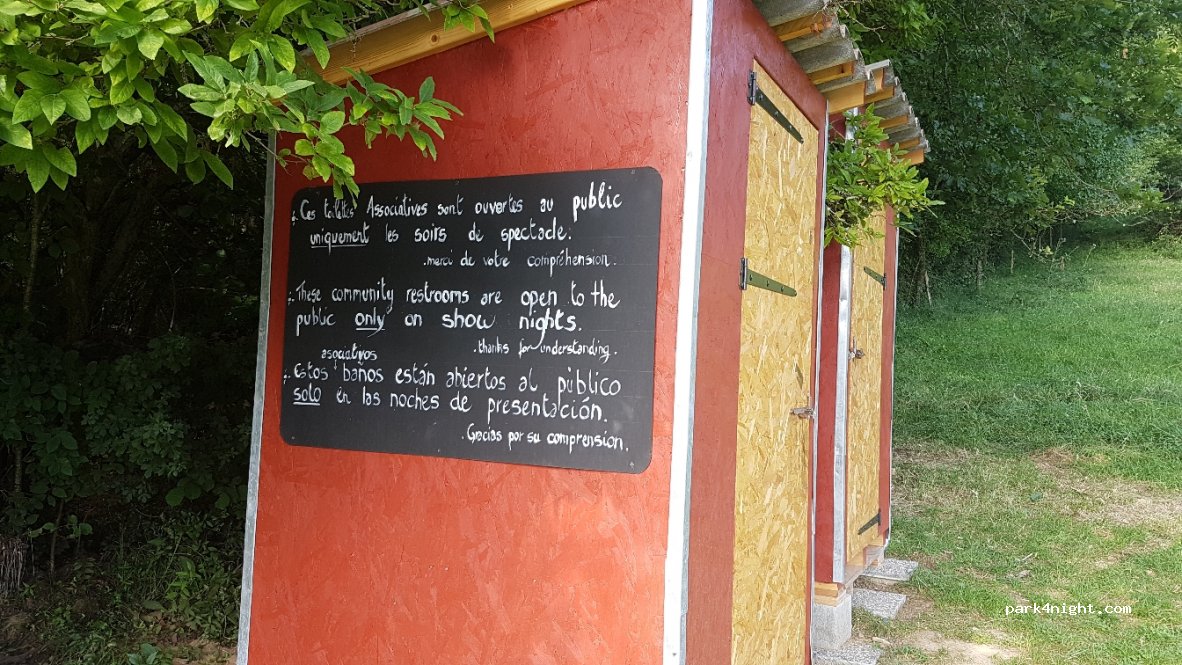 Ces toilettes Associatives sont ouvertes au public
uniquement les soirs de spectacle.
.merci de votre compréhension.
These community restrooms are open to the
public only on show nights.
.thanks for understanding.
asociativos
Estos baños están abiertos al público
solo en las noches de presentación.
.Gracias por su comprension.
park4night.com